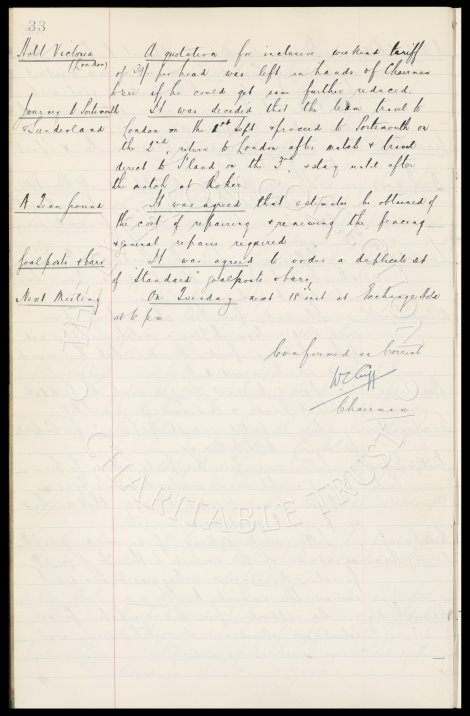 33
Hotel Victoria
(London)
A quotation for inclusive weekend tariff
of 39/- per head was left in hands of Chairman
to see if he could get same further reduced.
Journey to Portsmouth
& Sunderland
It was decided that the team travel to
London on the 1st Sept & proceed to Portsmouth on
the 2nd, return to London after match & travel
direct to S'land on the 3rd, & stay until after
the match at Roker
A Team ground
It was agreed that estimates be obtained of
the cost of repairing & renewing the fencing
& general repairs required
Goalposts & bars
It was agreed to order a duplicate set
of "Standard" goalposts & bars
Next Meeting
On Tuesday next 18 inst at Exchange Hotel
at 6 pm
Confirmed as Correct
WC Cuff
Chairman
CHARITABLE TRUST